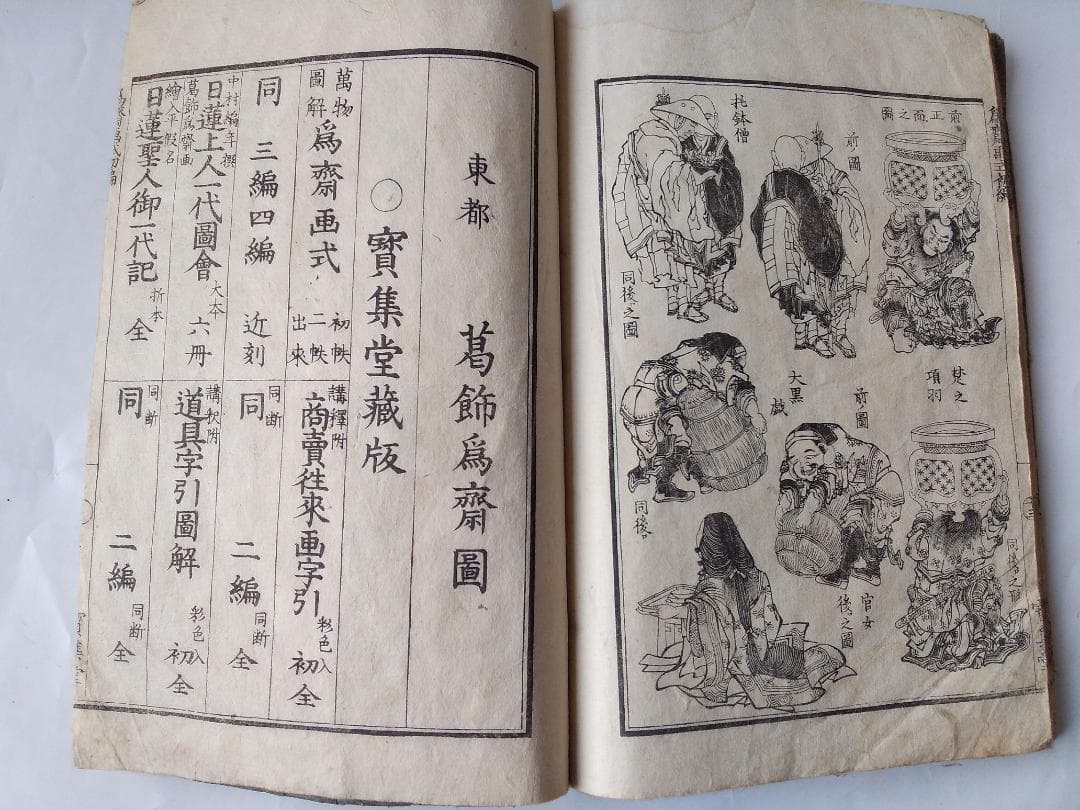 前正面之圖
前圖
托鉢僧
同後之圖
楚之項羽
同後之圖
大黒戯
前ノ圖
同後
官女後之圖
東都 葛飾為齋圖
寶集堂藏版
萬物圖解 為齋画式 初帙二帙出來
同 三編四編 近刻
中村編年撰
葛飾為齋画
日蓮上人一代圖會 大本 六冊
繪入平假名
日蓮聖人御一代記 折本 全
講釋附
商賣往來画字引 彩色入 初全
同断
同 二編 同断 全
講釈附
道具字引圖解 彩色入 初全
同断
同 二編 同断 全